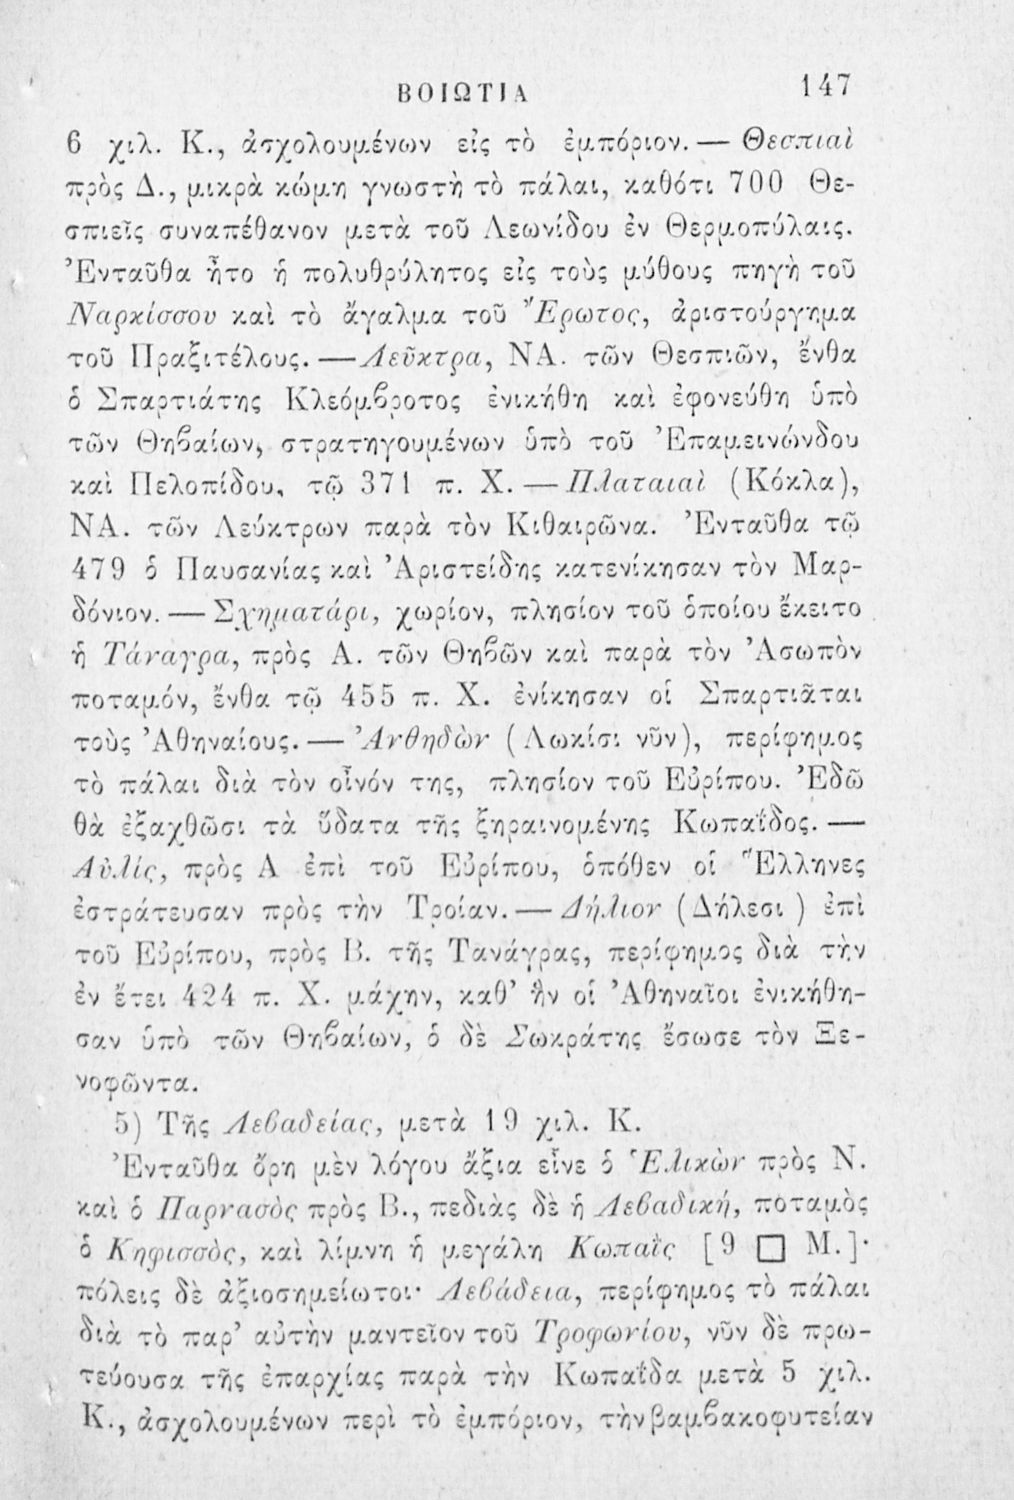 ΒΟΙΩΤΙΑ 147
6 χιλ. Κ., ἀσχολουμένων εἰς τὸ ἐμπόριον. — Θεσπιαὶ
πρὸς Δ., μικρὰ κώμη γνωστὴ τὸ πάλαι, καθότι 700 Θε-
σπιεῖς συναπέθανον μετὰ τοῦ Λεωνίδου ἐν Θερμοπύλαις.
Ἐνταῦθα ἦτο ἡ πολυθρύλητος εἰς τοὺς μύθους πηγὴ τοῦ
Ναρκίσσου καὶ τὸ ἄγαλμα τοῦ Ἔρωτος, ἀριστούργημα
τοῦ Πραξιτέλους. — Λεῦκτρα, ΝΑ. τῶν Θεσπιῶν, ἔνθα
ὁ Σπαρτιάτης Κλεόμβροτος ἐνικήθη καὶ ἐφονεύθη ὑπὸ
τῶν Θηβαίων, στρατηγουμένων ὑπὸ τοῦ Ἐπαμεινώνδου
καὶ Πελοπίδου, τῷ 371 π. Χ. — Πλαταιαὶ (Κόκλα),
ΝΑ. τῶν Λεύκτρων παρὰ τὸν Κιθαιρῶνα. Ἐνταῦθα τῷ
479 ὁ Παυσανίας καὶ Ἀριστείδης κατενίκησαν τὸν Μαρ-
δόνιον. — Σχηματάρι, χωρίον, πλησίον τοῦ ὁποίου ἔκειτο
ἡ Τάναγρα, πρὸς Α. τῶν Θηβῶν καὶ παρὰ τὸν Ἀσωπὸν
ποταμόν, ἔνθα τῷ 455 π. Χ. ἐνίκησαν οἱ Σπαρτιᾶται
τοὺς Ἀθηναίους. — Ἀνθηδὼν (Λωκίσι νῦν), περίφημος
τὸ πάλαι διὰ τὸν οἶνόν της, πλησίον τοῦ Εὐρίπου. Ἐδῶ
θὰ ἐξαχθῶσι τὰ ὕδατα τῆς ξηραινομένης Κωπαΐδος. —
Αὐλίς, πρὸς Α ἐπὶ τοῦ Εὐρίπου, ὁπόθεν οἱ Ἕλληνες
ἐστράτευσαν πρὸς τὴν Τροίαν. — Δήλιον (Δήλεσι) ἐπὶ
τοῦ Εὐρίπου, πρὸς Β. τῆς Τανάγρας, περίφημος διὰ τὴν
ἐν ἔτει 424 π. Χ. μάχην, καθ' ἣν οἱ Ἀθηναῖοι ἐνικήθη-
σαν ὑπὸ τῶν Θηβαίων, ὁ δὲ Σωκράτης ἔσωσε τὸν Ξε-
νοφῶντα.
5) Τῆς Λεβαδείας, μετὰ 19 χιλ. Κ.
Ἐνταῦθα ὄρη μὲν λόγου ἄξια εἶνε ὁ Ἑλικὼν πρὸς Ν.
καὶ ὁ Παρνασὸς πρὸς Β., πεδιὰς δὲ ἡ Λεβαδική, ποταμὸς
ὁ Κηφισσὸς, καὶ λίμνη ἡ μεγάλη Κωπαῒς [9 □ Μ.]·
πόλεις δὲ ἀξιοσημείωτοι· Λεβάδεια, περίφημος τὸ πάλαι
διὰ τὸ παρ' αὐτὴν μαντεῖον τοῦ Τροφωνίου, νῦν δὲ πρω-
τεύουσα τῆς ἐπαρχίας παρὰ τὴν Κωπαΐδα μετὰ 5 χιλ.
Κ., ἀσχολουμένων περὶ τὸ ἐμπόριον, τὴν βαμβακοφυτείαν